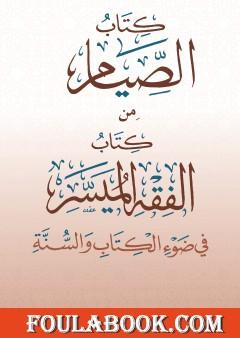 كِتَابُ
الصِّيَامِ
مِن
كِتَابُ
الفِقْهِ المُيَسَّرِ
فِي ضَوْءِ الكِتَابِ وَالسُّنَّةِ
FOULABOOK.COM